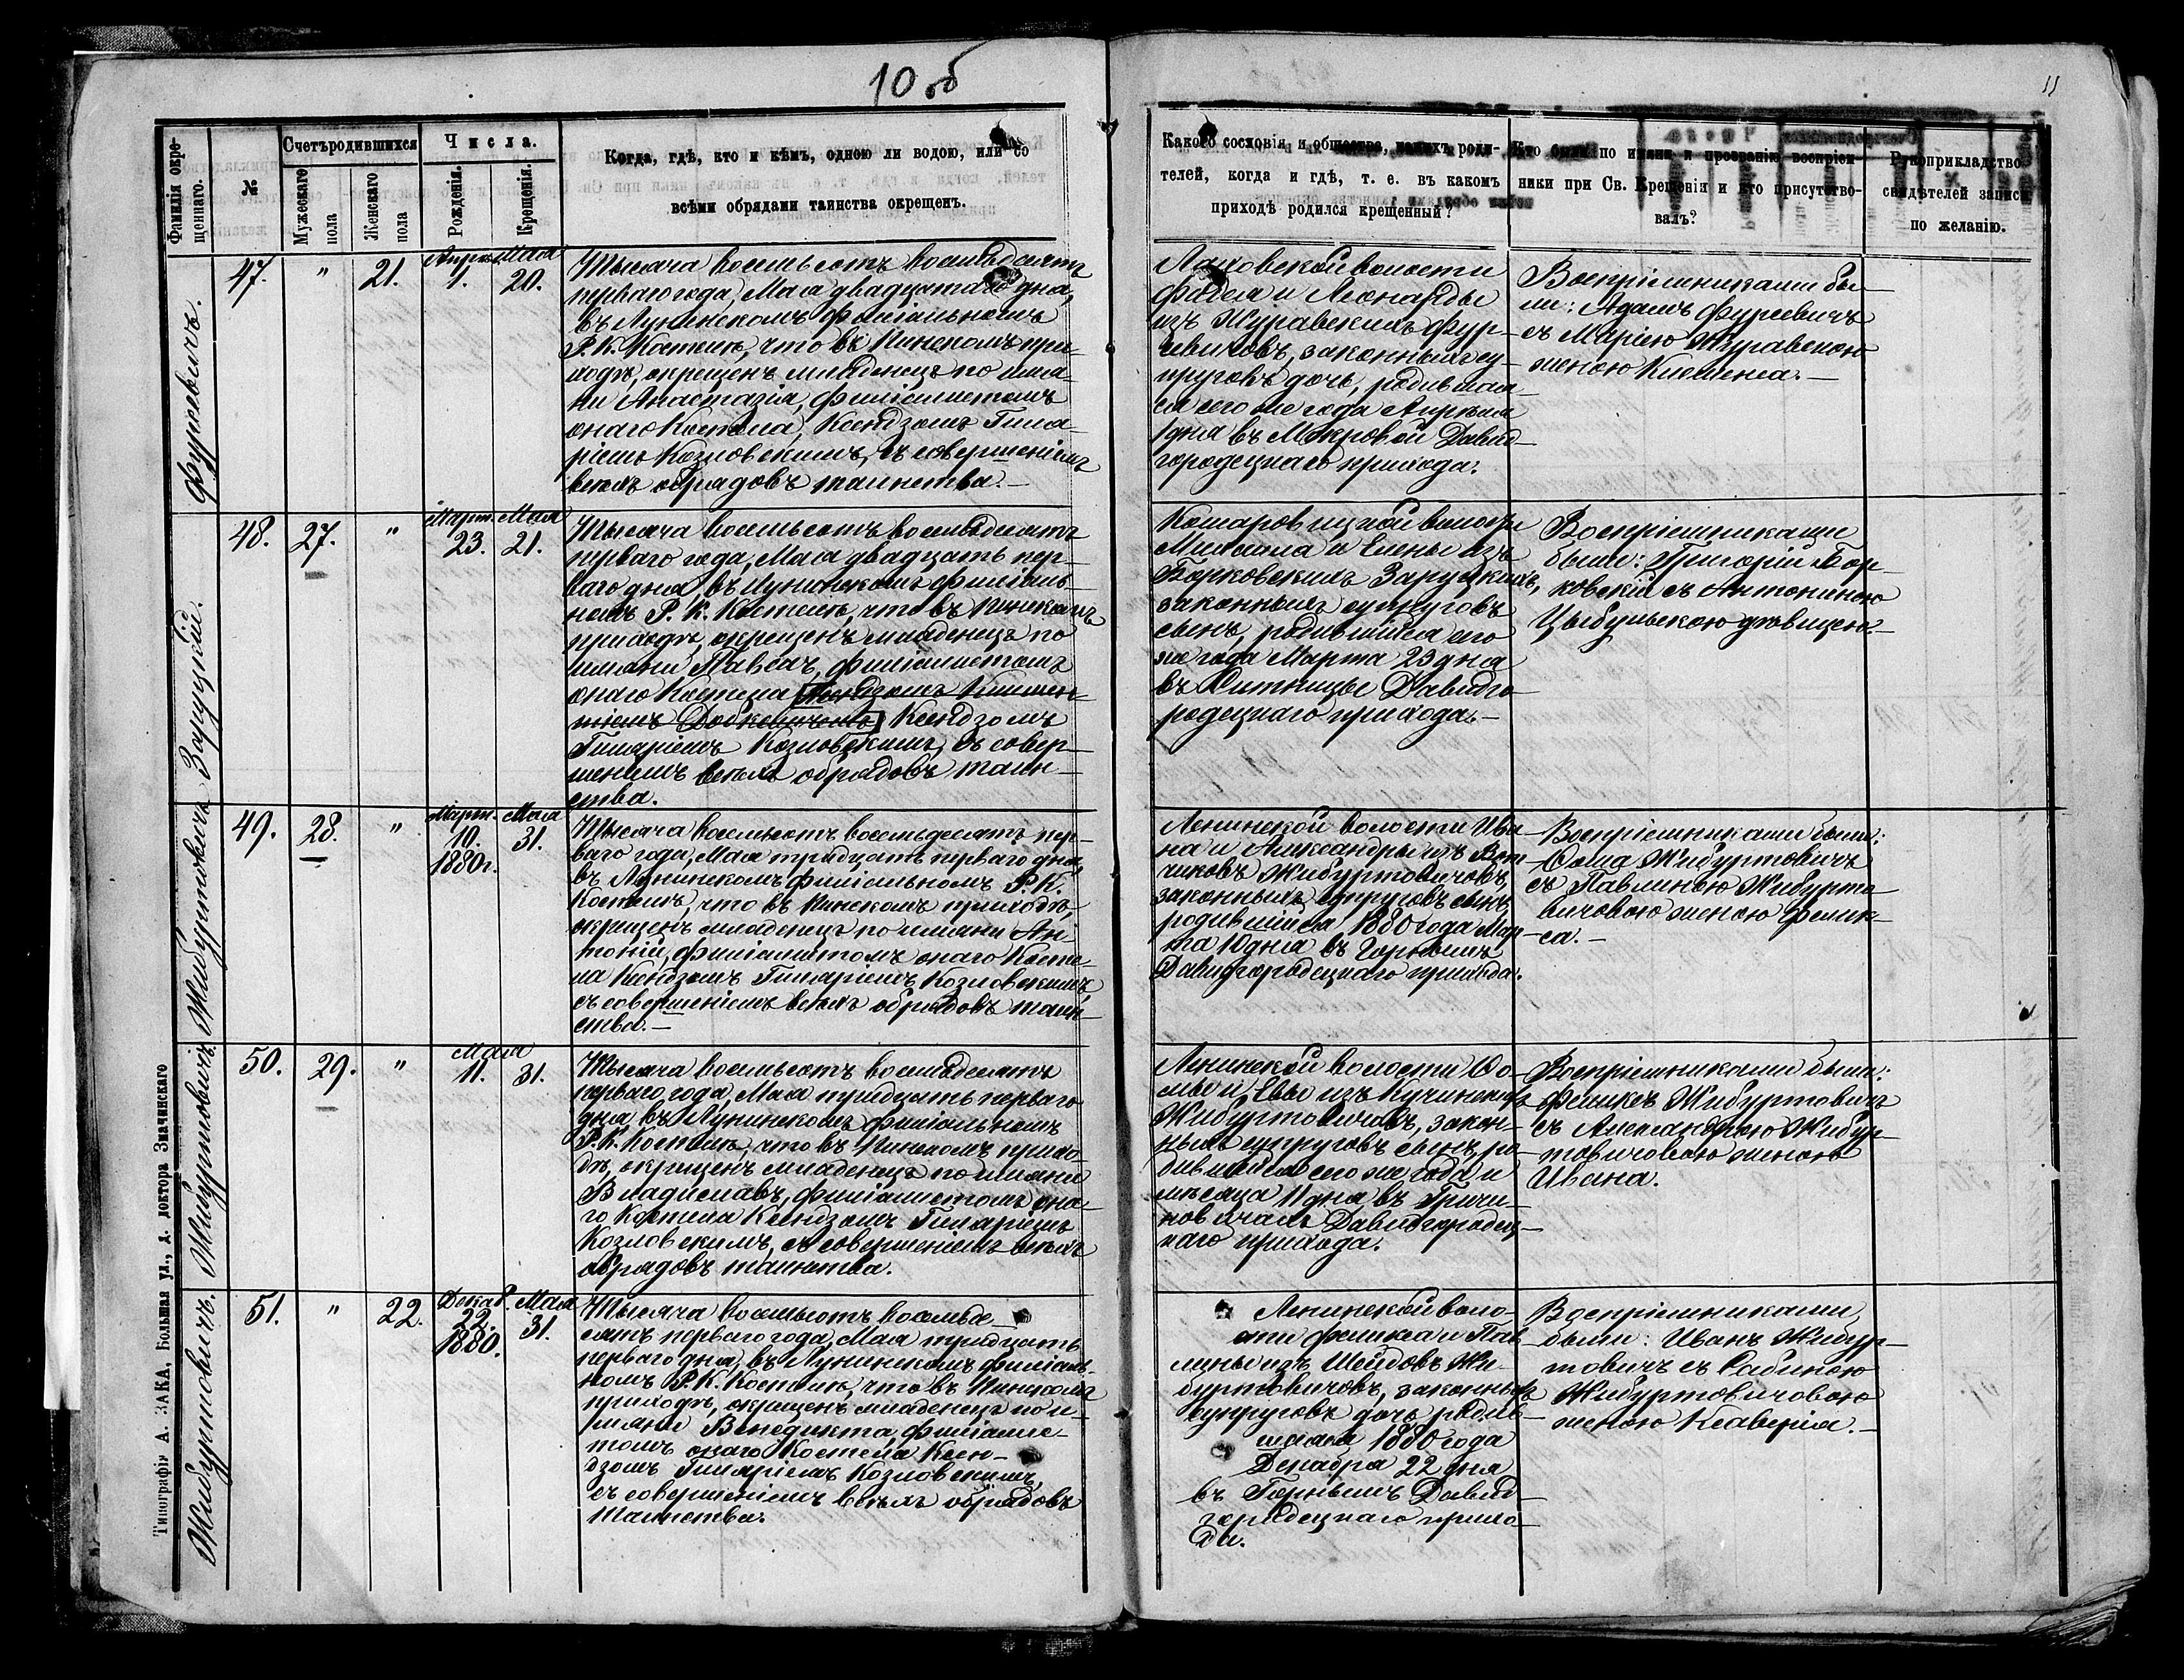 10 об
11
Фамилія окре-
щеннаго.
№
Счетъ родившихся
Мужескаго
пола
Женскаго
пола
Числа.
Рожденія.
Крещенія.
Когда, гдѣ, кто и кѣмъ, одною ли водою, или со
всѣми обрядами таинства окрещенъ.
Какого сословія и общества, какихъ роди-
телей, когда и гдѣ, т. е. въ какомъ
приходѣ родился крещенный?
Кто были по имени и прозванію воспріем-
ники при Св. Крещеніи и кто присутство-
валъ?
Рукоприкладство
свидѣтелей записи
по желанію.
Фурсевичъ.
47.
"
21.
Апрѣл.
1.
Мая
20.
Тысяча восемьсотъ восемьдесятъ
перваго года, Мая двадцатаго дня,
въ Лунинскомъ филіальномъ
Р. К. Костелѣ, что въ Пинскомъ при-
ходѣ, окрещенъ младенецъ по име-
ни Анастазія, филіалистомъ
онаго Костела, Ксендзомъ Гила-
ріемъ Козловскимъ, съ совершеніемъ
всѣхъ обрядовъ таинства.—
Лаховской волости
Фадея и Леонарды
изъ Журавскихъ Фур-
севичовъ, законныхъ су-
пруговъ дочь, родившая-
ся сего же года Апрѣля
1 дня въ Мокровой Давид-
городецкаго прихода.
Воспріемниками бы-
ли: Адамъ Фурсевичъ
съ Маріею Журавскою
женою Климента.—
Заруцкій.
48.
27.
"
Март.
23.
Мая
21.
Тысяча восемьсотъ восемьдесятъ
перваго года, Мая двадцать пер-
ваго дня, въ Лунинскомъ филіаль-
номъ Р. К. Костелѣ, что въ Пинскомъ
приходѣ, окрещенъ младенецъ по
имени Павелъ, филіалистомъ
онаго Костела Ксендзомъ Климен-
тіемъ Добкевичомъ Ксендзомъ
Гиляріемъ Козловскимъ, съ совер-
шеніемъ всѣхъ обрядовъ таин-
ства.
Комаровицкой волости
Михаила и Елены изъ
Борковскихъ Заруцкихъ,
законныхъ супруговъ
сынъ, родившійся сего
же года Марта 23 дня
въ Ситницѣ Давидго-
родецкаго прихода.—
Воспріемниками
были: Григорій Бор-
ковскій съ Антониною
Цыбульскою дѣвицею.—
Жибуртовичъ
49.
28.
"
Март.
10.
1880 г.
Мая
31.
Тысяча восемьсотъ восемьдесятъ пер-
ваго года, Мая тридцать перваго дня,
въ Лунинскомъ филіальномъ Р. К.
Костелѣ, что въ Пинскомъ приходѣ,
окрещенъ младенецъ по имени Ан-
тоній, филіалистомъ онаго Косте-
ла Ксендзомъ Гиляріемъ Козловскимъ,
съ совершеніемъ всѣхъ обрядовъ таин-
ства.—
Ленинской волости Ива-
на и Александры изъ
Жибуртовичовъ,
законныхъ супруговъ сынъ,
родившійся 1880 года Мар-
та 10 дня въ
Давидгородецкаго прихода.
Воспріемниками были:
Ѳома Жибуртовичъ
съ Павлиною Жибурто-
вичовою женою Фелик-
са.—
Жибуртовичъ.
50.
29.
"
Мая
11.
31.
Тысяча восемьсотъ восемьдесятъ
перваго года, Мая тридцать перваго
дня, въ Лунинскомъ филіальномъ
Р. К. Костелѣ, что въ Пинскомъ прихо-
дѣ, окрещенъ младенецъ по имени
Владиславъ, филіалистомъ она-
го Костела Ксендзомъ Гиляріемъ
Козловскимъ, съ совершеніемъ всѣхъ
обрядовъ таинства.
Ленинской волости Ѳо-
мы и Евы изъ Кучинскихъ
Жибуртовичовъ, закон-
ныхъ супруговъ сынъ, ро-
дившійся сего же года и
мѣсяца 11 дня, въ Гричи-
новичахъ Давидгородец-
каго прихода.
Воспріемниками были:
Феликсъ Жибуртовичъ
съ Александрою Жибур-
товичовою женою
Ивана.
Жибуртовичъ.
51.
"
22.
Декаб.
22.
1880.
Мая
31.
Тысяча восемьсотъ восемьде-
сятъ перваго года, Мая тридцать
перваго дня, въ Лунинскомъ филіаль-
номъ Р. К. Костелѣ, что въ Пинскомъ
приходѣ, окрещенъ младенецъ по и-
мени Венедикта, филіалис-
томъ онаго Костела Ксен-
дзомъ Гиляріемъ Козловскимъ,
съ совершеніемъ всѣхъ обрядовъ
таинства.
Ленинской воло-
сти Феликса и Пав-
лины изъ Шейдовъ Жи-
буртовичовъ, законныхъ
супруговъ дочь родив-
шаяся 1880 года
Декабря 22 дня
въ Давид-
городецкаго прихо-
да.
Воспріемниками
были: Иванъ Жибур-
товичъ съ Сабиною
Жибуртовичовою
женою Ксаверія.—
Типографія А. ЗАКА, Большая ул., д. доктора Значинскаго